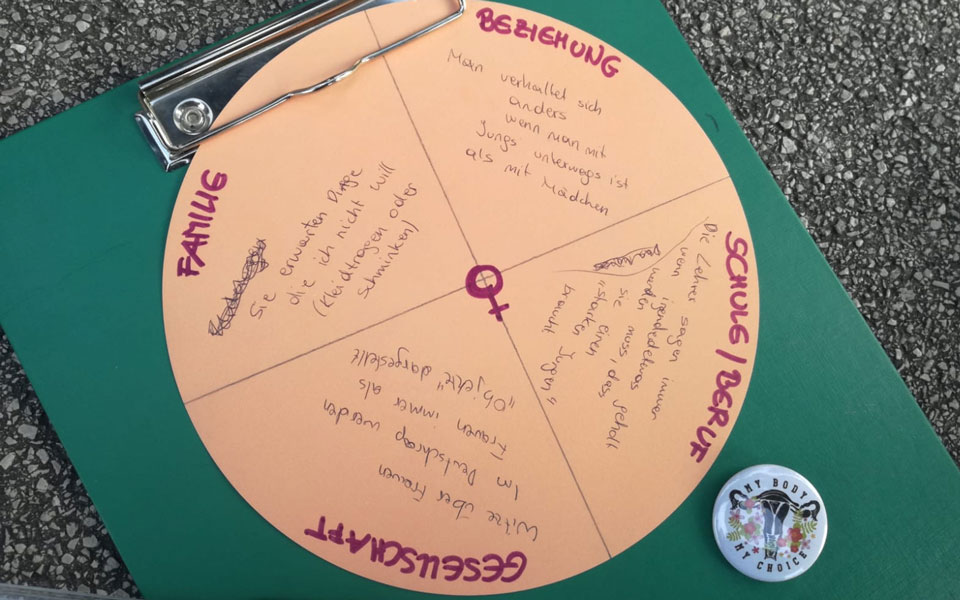 BEZIEHUNG
Man verhaltet sich
anders
wenn man mit
Jungs unterwegs ist
als mit Mädchen
SCHULE/BERUF
Die Lehrer sagen immer
wenn irgendetwas
werden muss, dass
sie einen
"Starken Jungen"
braucht
geholt
GESELLSCHAFT
Witze über Frauen
Im Deutschrap werden
Frauen immer als
"Objekte" dargestellt
FAMILIE
Sie erwarten Dinge
die ich nicht will
(Kleidtragen oder
Schminken)
MY BODY
MY CHOICE